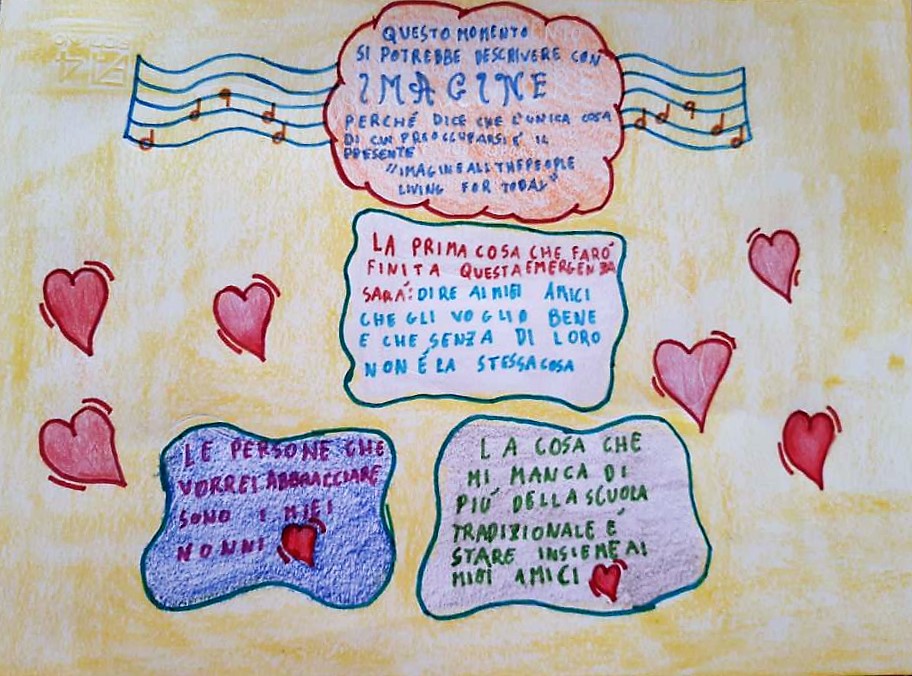 QUESTO MOMENTO
SI POTREBBE DESCRIVERE CON
IMAGINE
PERCHÉ DICE CHE L'UNICA COSA
DI CUI PREOCCUPARSI É IL
PRESENTE
"IMAGINE ALL THE PEOPLE
LIVING FOR TODAY"
LA PRIMA COSA CHE FARÓ
FINITA QUESTA EMERGENZA
SARÁ: DIRE AI MIEI AMICI
CHE GLI VOGLIO BENE
E CHE SENZA DI LORO
NON É LA STESSA COSA
LE PERSONE CHE
VORREI ABBRACCIARE
SONO I MIEI
NONNI
LA COSA CHE
MI MANCA DI
PIÚ DELLA SCUOLA
TRADIZIONALE É
STARE INSIEME AI
MIEI AMICI